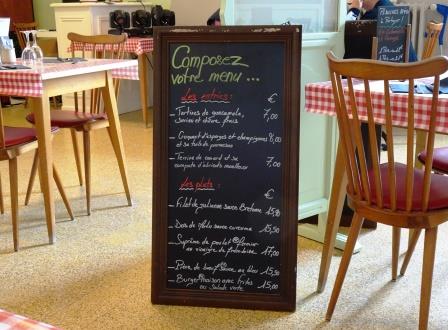 Composez
votre menu ...
Les entrées :
€
Tartines de guacamole,
servies et chèvre frais 7,00
Croquant d'asperges et champignons 8,00
et sa tuile de parmesan
Terrine de canard et sa
compotée d'abricots moelleux 7
Les plats :
€
Filet de julienne sauce Bretonne 15,50
Dos de sauce curcuma 15,50
Suprême de poulet fermier
au vinaigre de framboise 17,00
Pièce de boeuf sauce au bleu 15,50
Burger maison avec frites
ou salade verte 15,00